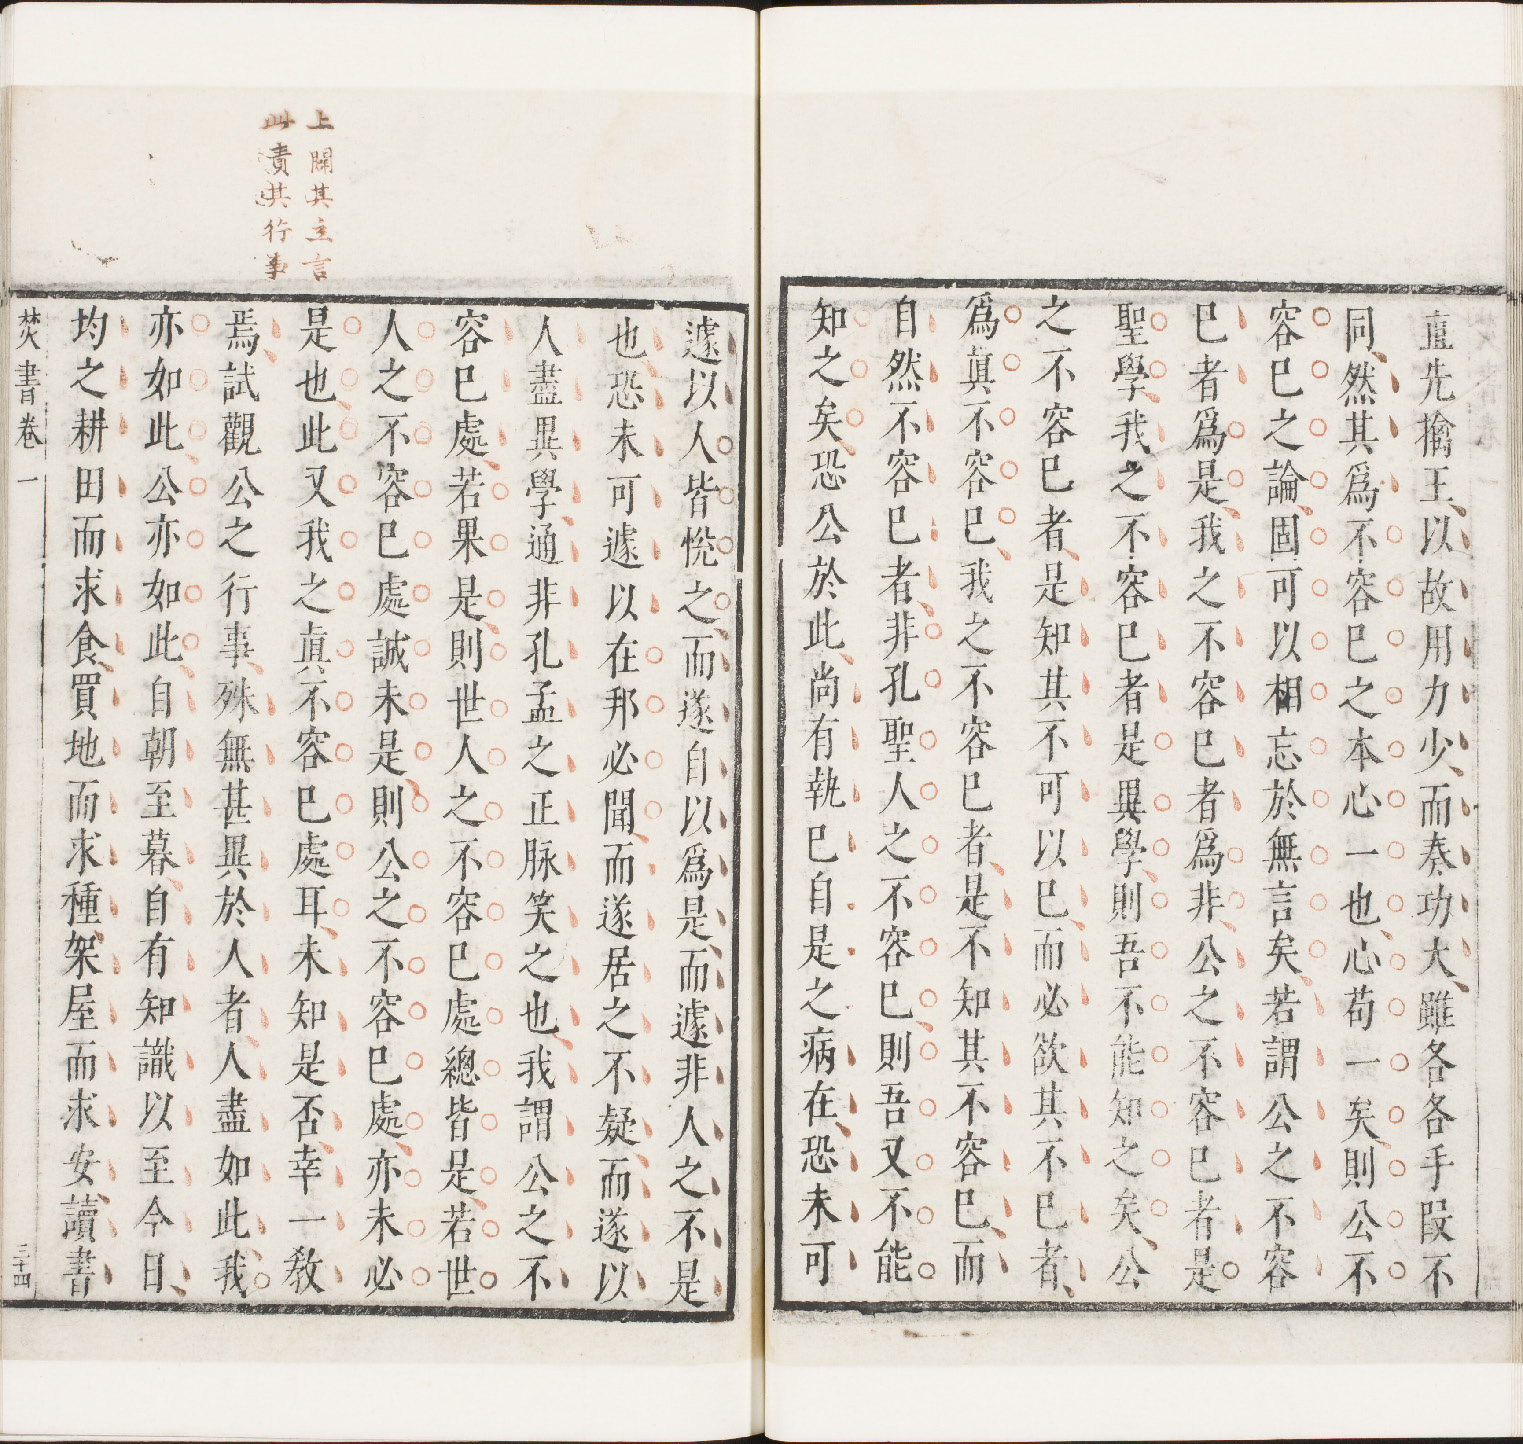 直先擒王以故用力少而奏功大雖各各手段不
同然其爲不容已之本心一也心苟一矣則公不
容已之論固可以相忘於無言矣若謂公之不容
已者爲是我之不容已者爲非公之不容已者是
聖學我之不容已者是異學則吾不能知之矣公
之不容已者是知其不可以已而必欲其不已者
爲眞不容已我之不容已者是不知其不容已而
自然不容已者非孔聖人之不容已則吾又不能
知之矣恐公於此尚有執已自是之病在恐未可
遽以人皆悅之而遂自以爲是而遽非人之不是
也恐未可遽以在邦必聞而遂居之不疑而遂以
人盡異學通非孔孟之正脉笑之也我謂公之不
容已處若果是則世人之不容已處總皆是若世
人之不容已處誠未是則公之不容已處亦未必
是也此又我之眞不容已處耳未知是否幸一敎
焉試觀公之行事殊無甚異於人者人盡如此我
亦如此公亦如此自朝至暮自有知識以至今日
均之耕田而求食買地而求種架屋而求安讀書
焚書卷一
三十四
上闢其主言
此責其行事